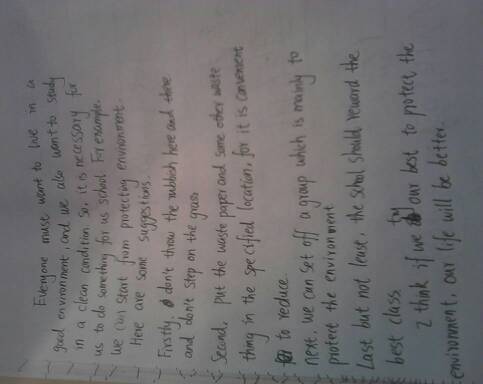 Everyone muse want to live in a
good environment, and we also want to study
in a clean condition. So, it is necessary for
us to do something for us school. For example.
We can start from protecting environment.
Here are some suggestions.
Firstly, don't throw the rubbish here and there
and don't step on the grass.
Second, put the waste paper and some other waste
thing in the specified location, for it is convenient
to reduce.
next, we can set off a group which is mainly to
protect the environment
Last but not lease, the school should reward the
best class
I think if we try our best to protect the
environment, our life will be better.